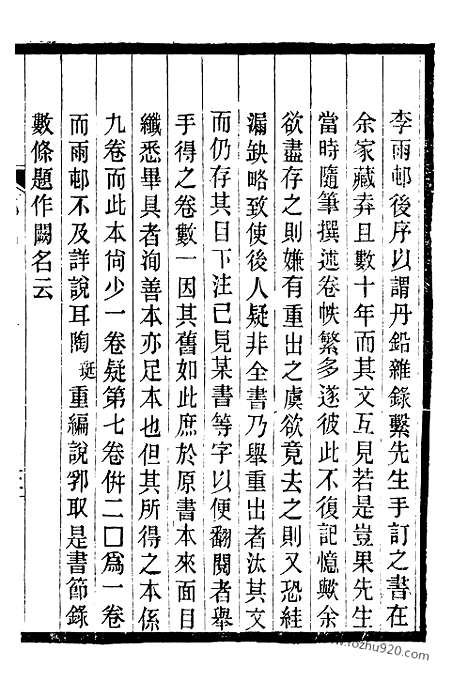 李雨邨後序以謂丹鉛雜錄繫先生手訂之書在
余家藏弆且數十年而其文互見若是豈果先生
當時隨筆撰述卷帙繁多遂彼此不復記憶歟余
欲盡存之則嫌有重出之虞欲竟去之則又恐絓
漏缺略致使後人疑非全書乃舉重出者汰其文
而仍存其目下注已見某書等字以便翻閱者舉
手得之卷數一因其舊如此庶於原書本來面目
纖悉畢具者洵善本亦足本也但其所得之本係
九卷而此本尙少一卷疑第七卷倂二囗爲一卷
而雨邨不及詳說耳陶珽重編說郛取是書節錄
數條題作闕名云
www.fozhu920.com